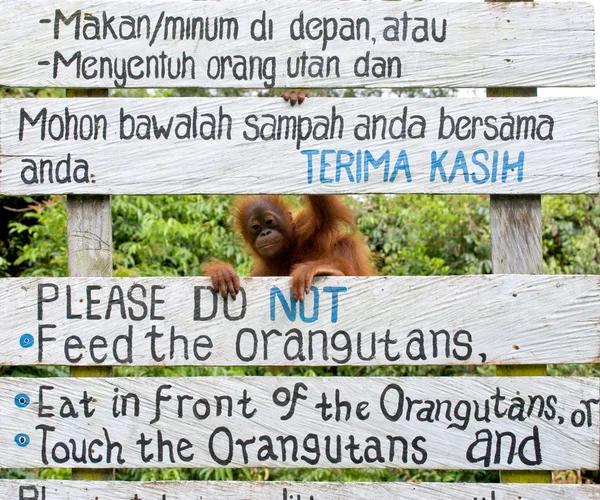 -Makan/minum di depan, atau
-Menyentuh orang utan dan
Mohon bawalah sampah anda bersama
anda. TERIMA KASIH
PLEASE DO NOT
Feed the Orangutans,
Eat in front of the Orangutans, or
Touch the Orangutans and